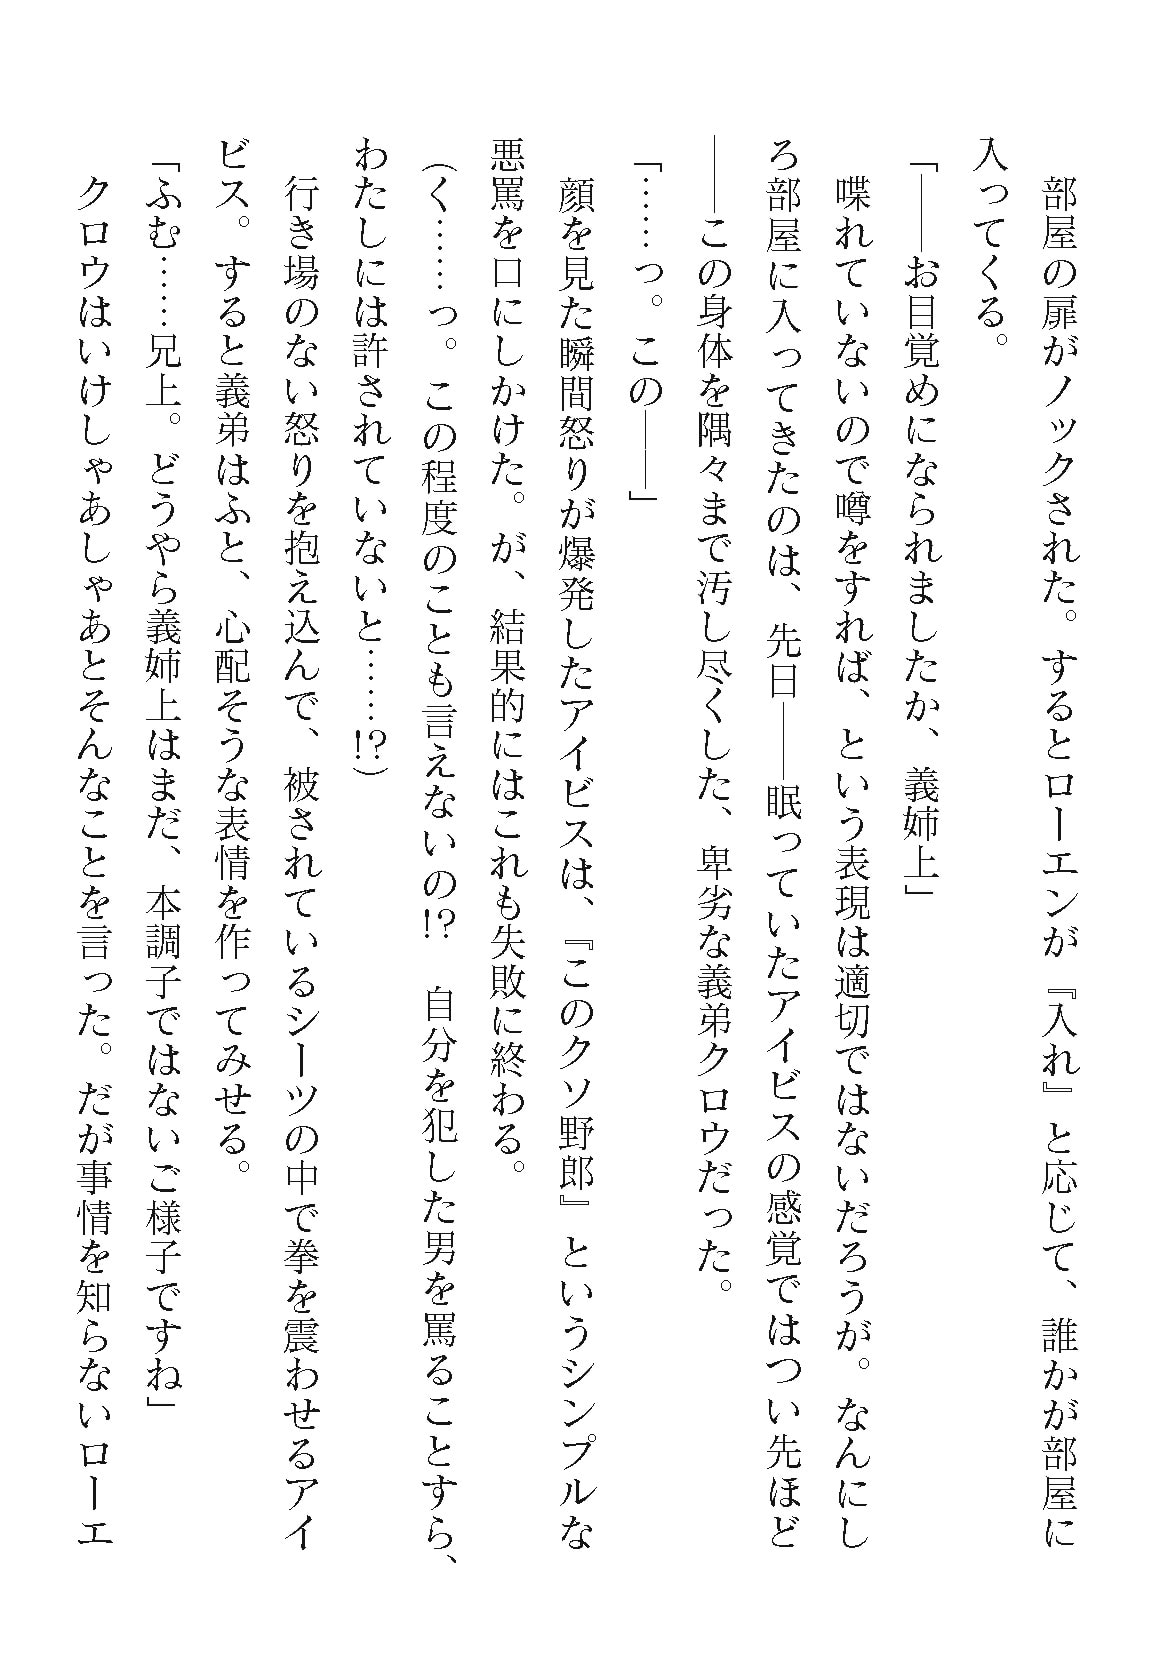 部屋の扉がノックされた。するとローエンが『入れ』と応じて、誰かが部屋に
入ってくる。
「――お目覚めになられましたか、義姉上」
喋れていないので噂をすれば、という表現は適切ではないだろうが。なんにし
ろ部屋に入ってきたのは、先日――眠っていたアイビスの感覚ではつい先ほど
――この身体を隅々まで汚し尽くした、卑劣な義弟クロウだった。
「……っ。この――」
顔を見た瞬間怒りが爆発したアイビスは、『このクソ野郎』というシンプルな
悪罵を口にしかけた。が、結果的にはこれも失敗に終わる。
（く……っ。この程度のことも言えないの!?　自分を犯した男を罵ることすら、
わたしには許されていないと……!?）
行き場のない怒りを抱え込んで、被されているシーツの中で拳を震わせるアイ
ビス。すると義弟はふと、心配そうな表情を作ってみせる。
「ふむ……兄上。どうやら義姉上はまだ、本調子ではないご様子ですね」
クロウはいけしゃあしゃあとそんなことを言った。だが事情を知らないローエ